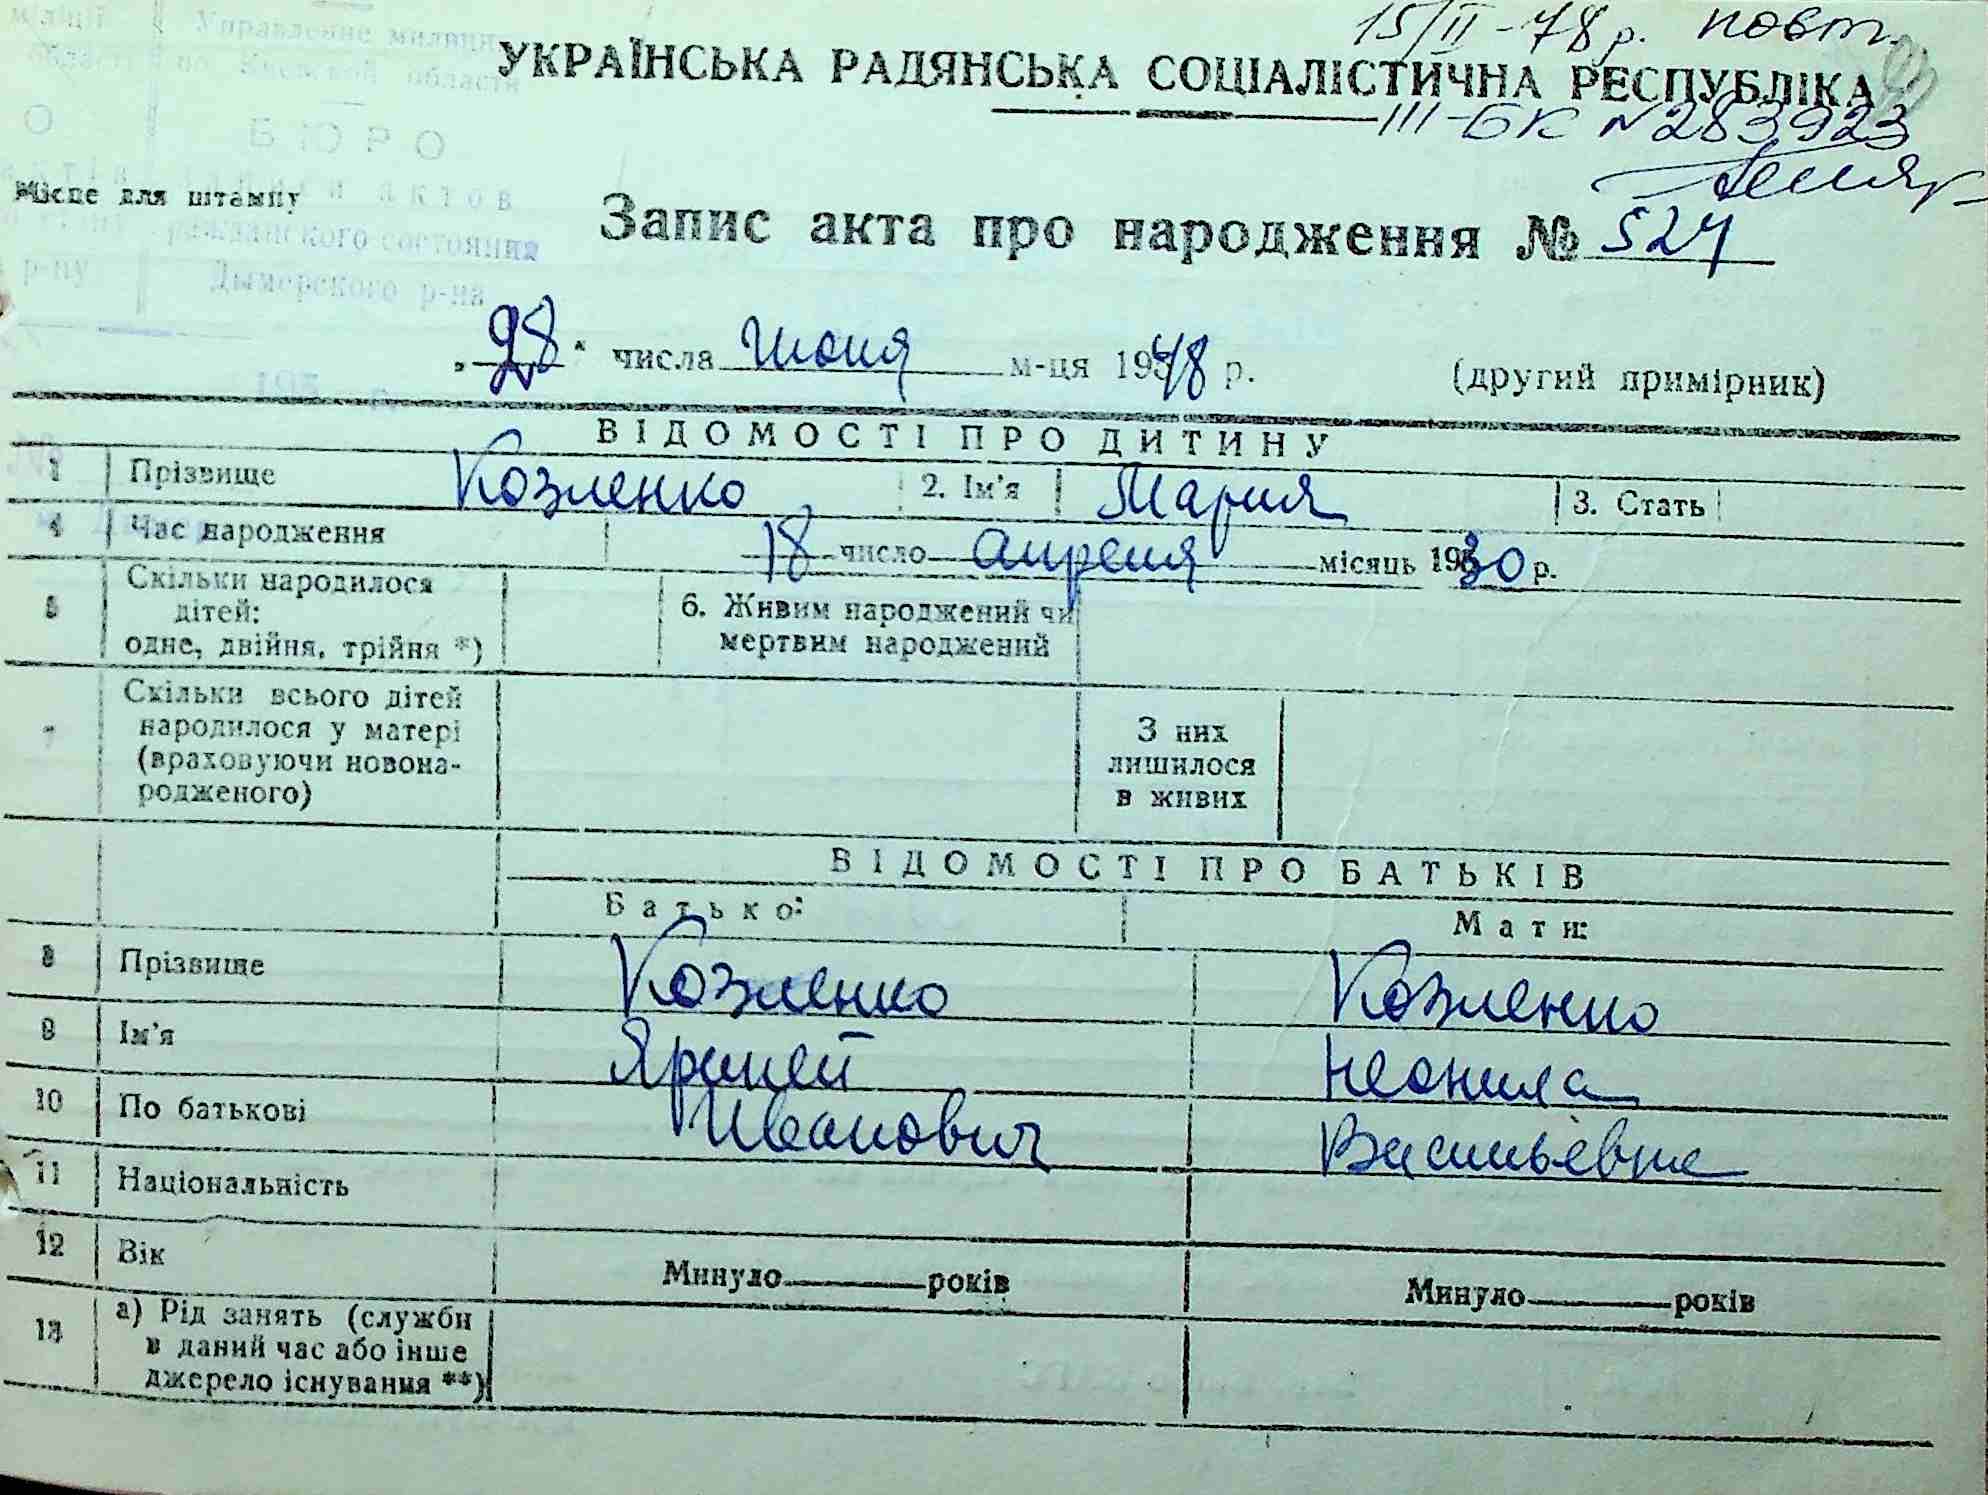 15/II-78 р. повт.
УКРАЇНСЬКА РАДЯНСЬКА СОЦІАЛІСТИЧНА РЕСПУБЛІКА
III-БК №283923
Управление милиции
по Киевской области
БЮРО
актов
гражданского состояния
р-ну Дымерского р-на
Місце для штампу
Запис акта про народження № 527
„28" числа Июня м-ця 1948 р. (другий примірник)
195 р.
ВІДОМОСТІ ПРО ДИТИНУ
1 Прізвище Козленко 2. Ім'я Мария 3. Стать
4 Час народження 18 число Апреля місяць 1930 р.
5 Скільки народилося дітей: одне, двійня, трійня *) 6. Живим народжений чи мертвим народжений
7 Скільки всього дітей народилося у матері (враховуючи новонародженого) З них лишилося в живих
ВІДОМОСТІ ПРО БАТЬКІВ
Батько: Мати:
8 Прізвище Козленко Козленко
9 Ім'я Неонила
10 По батькові Иванович Васильевна
11 Національність
12 Вік Минуло років Минуло років
13 а) Рід занять (служби в даний час або інше джерело існування **)